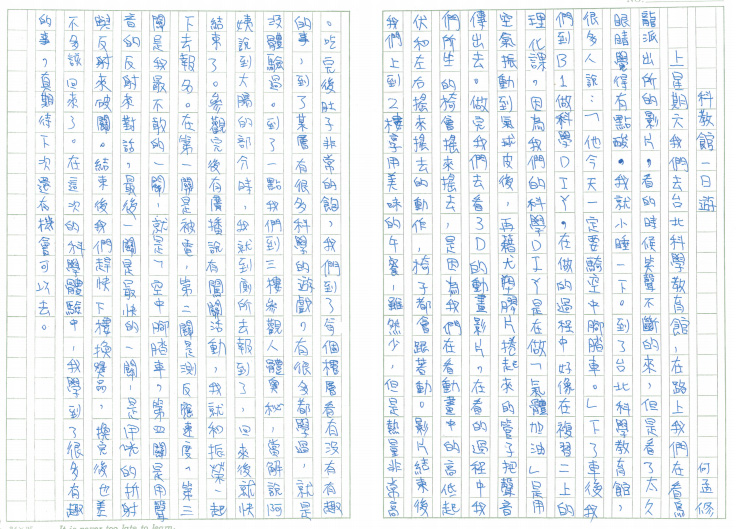 科教館一日遊 何孟修
上星期六我們去台北科學教育館,在路上我們在看烏
龍派出所的影片,看的時候笑聲不斷的來,但是看了太久
眼睛覺得有點酸,我就小睡一下。到了台北科學教育館,
很多人說:「他今天一定要騎空中腳踏車。」下了車後我
們到B1做科學DIY,在做的過程中好像在複習二上的
理化課,因為我們的科學DIY是在做「氣體加油」是用
空氣振動到氣球皮後,再藉尤塑膠片捲起來的管子把聲音
傳出去。做完我們去看3D的動畫影片,在看的過程中我
們所坐的椅會搖來搖去,是因為我們在看動畫中的高低起
伏和左右搖來搖去的動作,椅子都會跟著動。影片結束後
我們上到2樓享用美味的午餐,雖然少,但是熱量非常高
。吃完後肚子非常的飽,我們到了各個樓層看有沒有有趣
的事,到了某層有很多科學的遊戲,有很多都學過,就是
沒體驗過。到了一點我們到三樓參觀人體奧秘,當解說阿
姨說到大腸的部分時,我就到廁所去報到了,回來後就快
結束了。參觀完後有廣播說有闖關活動,我就和振榮一起
下去報名。在第一關是被電,第二關是測反應速度,第三
關是我最不敢的一關,就是「空中腳踏車,第四關是用聲
音的反射來對話,最後一關是最快的一關,是伊呒的折射
與反射來破關。結束後我們趕快下樓換獎品,換完後也差
不多該回來了。在這次的科學體驗中,我學到了很多有趣
的事,真期待下次還有機會可以去。
It is never too late to learn.